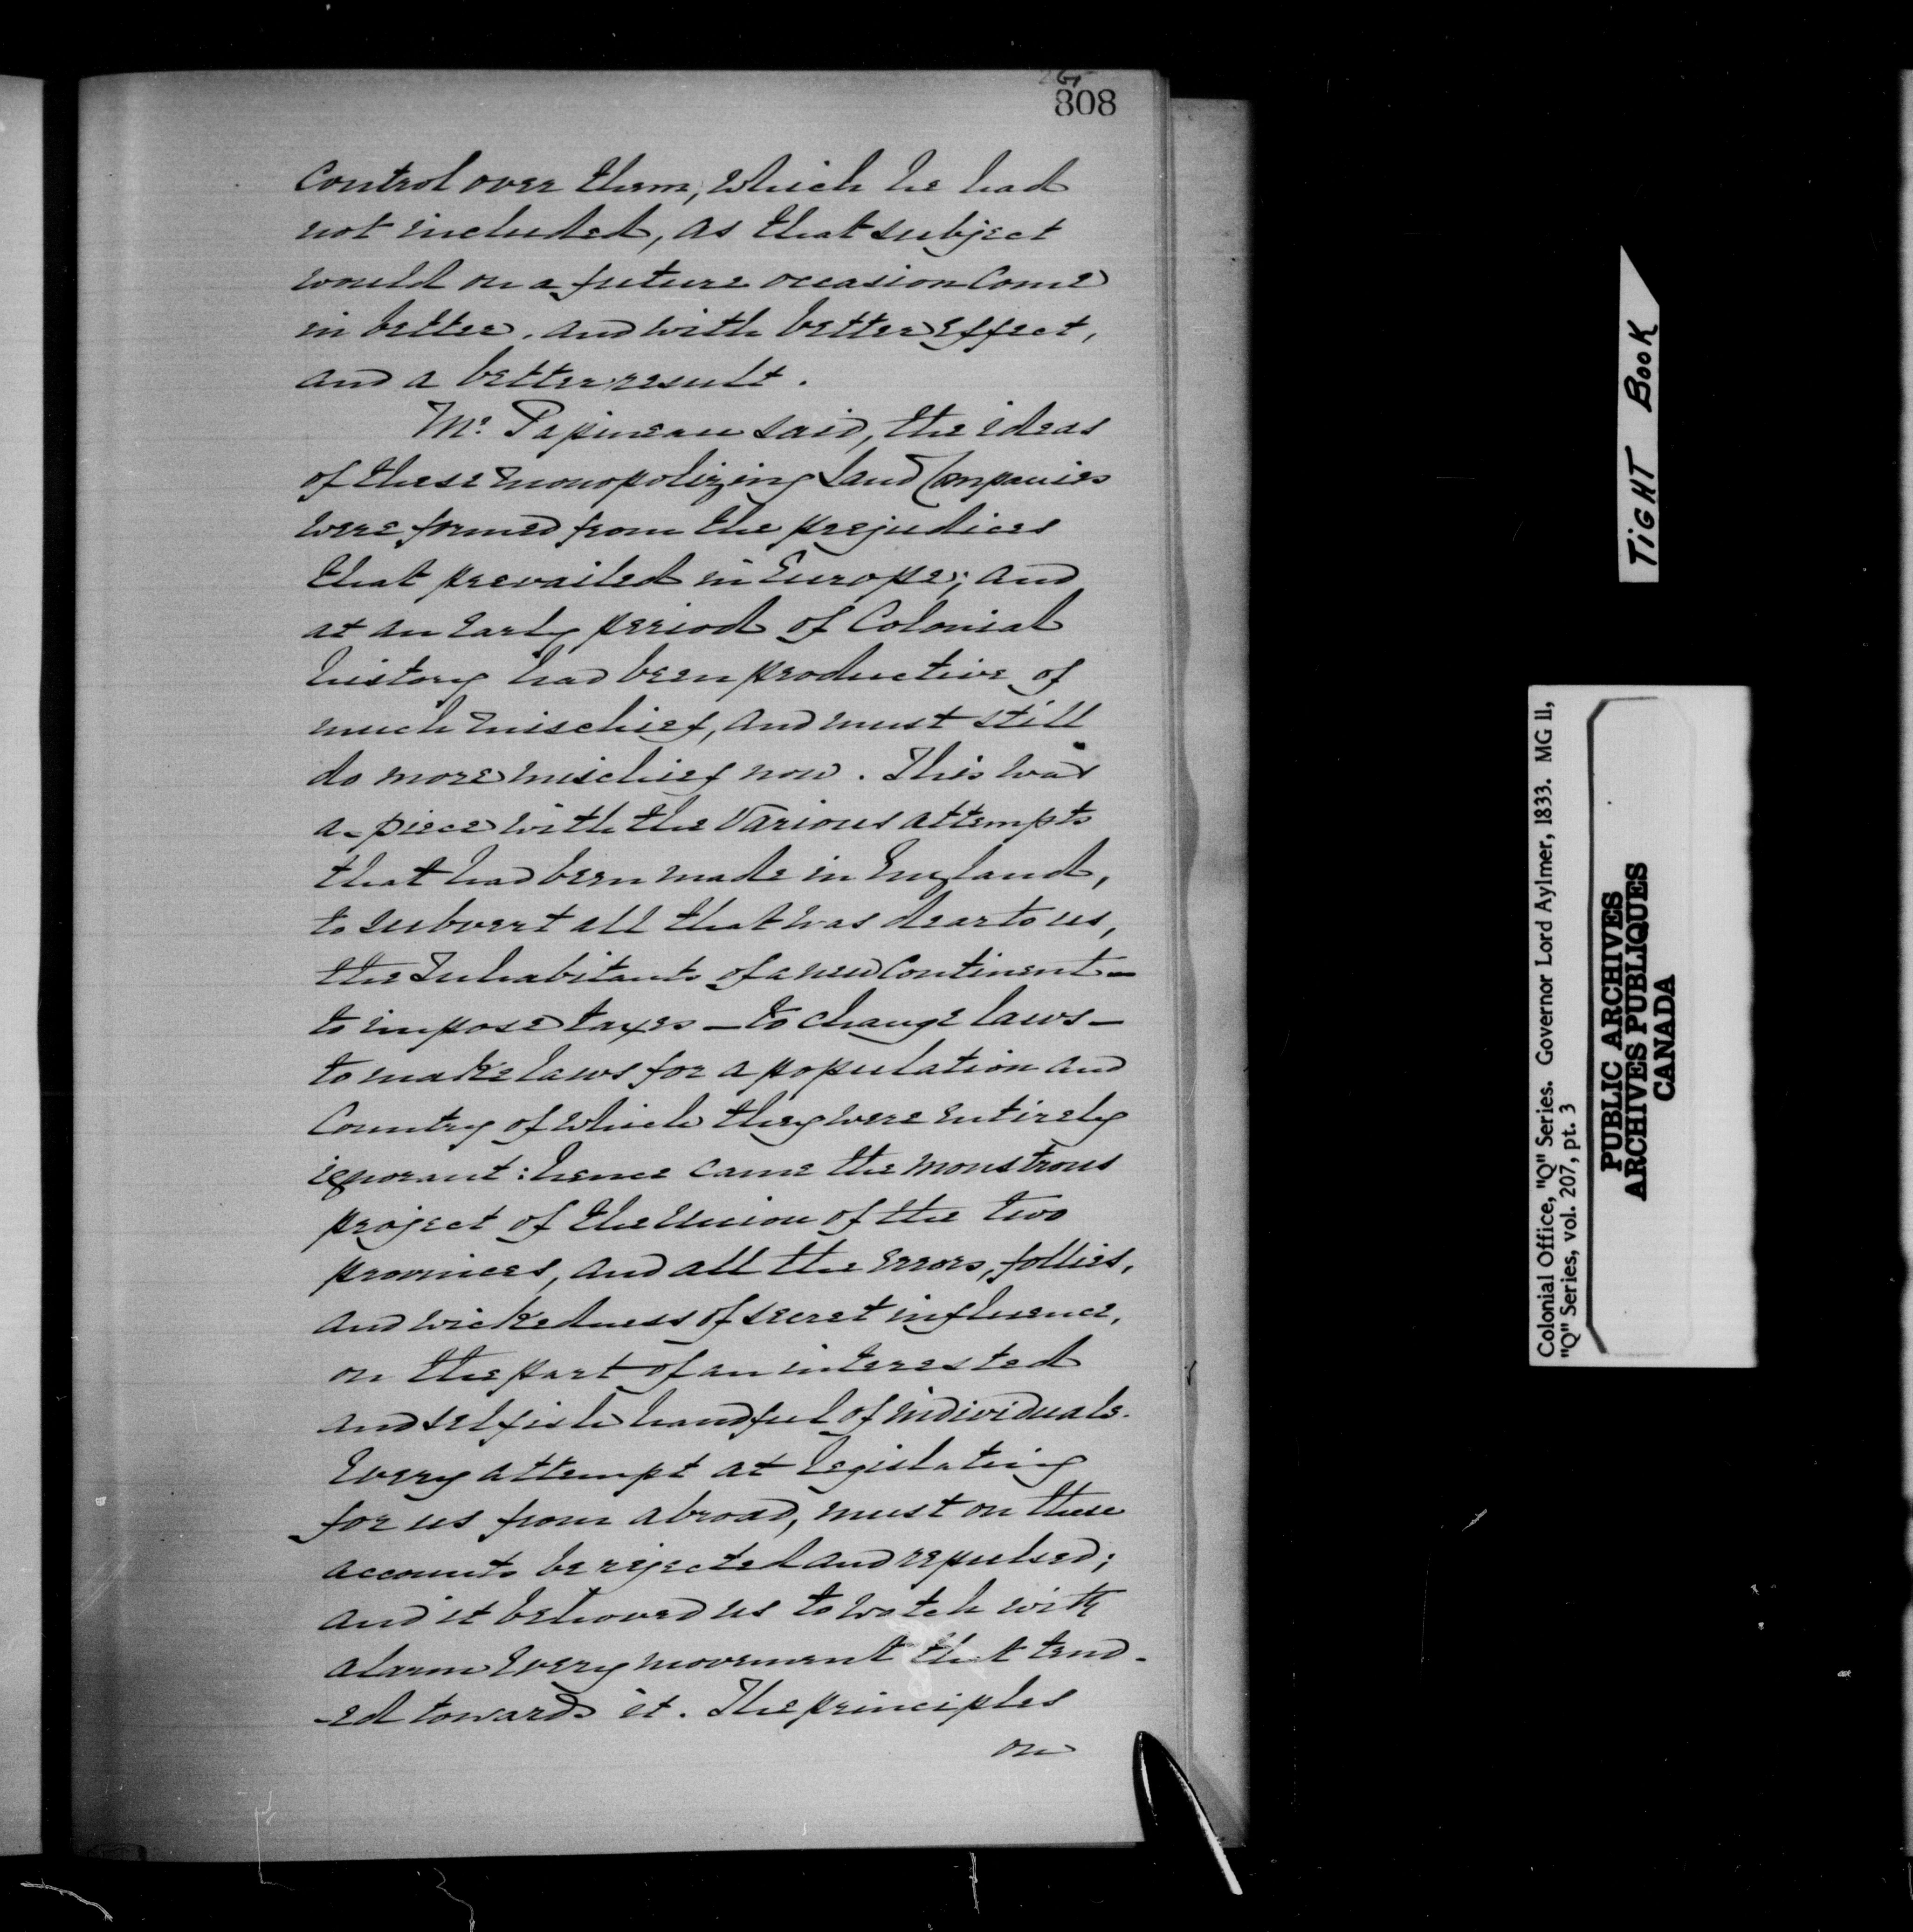 808
Control over them, which he had
not included, as that subject
would on a future occasion Come
in better, and with better effect,
and a better result.
Mr. Papineau said, the ideas
of these monopolizing Land Companies
were formed from the prejudices
that prevailed in Europe; and
at an early period of Colonial
history had been productive of
much mischief, and must still
do more mischief now. This was
a-piece with the various attempts
that had been made in England,
to subvert all that was dear to us,
the Inhabitants of a new Continent—
to impose taxes — to change laws—
to make laws for a population and
Country of which they were entirely
ignorant: hence came the monstrous
project of the Union of the two
provinces, and all the errors, follies,
and wickedness of secret influence,
on the part of an interested
and selfish handful of individuals.
Every attempt at legislating
for us from abroad, must on these
accounts be rejected and repulsed;
and it behoved us to watch with
alarm every movement that tend-
-ed towards it. The principles
on
TiGHT BooK
Colonial Office, "Q" Series. Governor Lord Aylmer, 1833. MG 11,
"Q" Series, vol. 207, pt. 3
PUBLIC ARCHIVES
ARCHIVES PUBLIQUES
CANADA